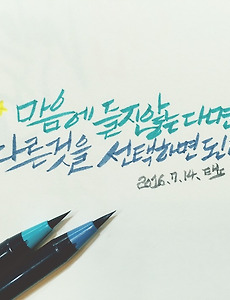 마음에 들지않는다면
다른것을 선택하면 된다
2016. 7. 14.